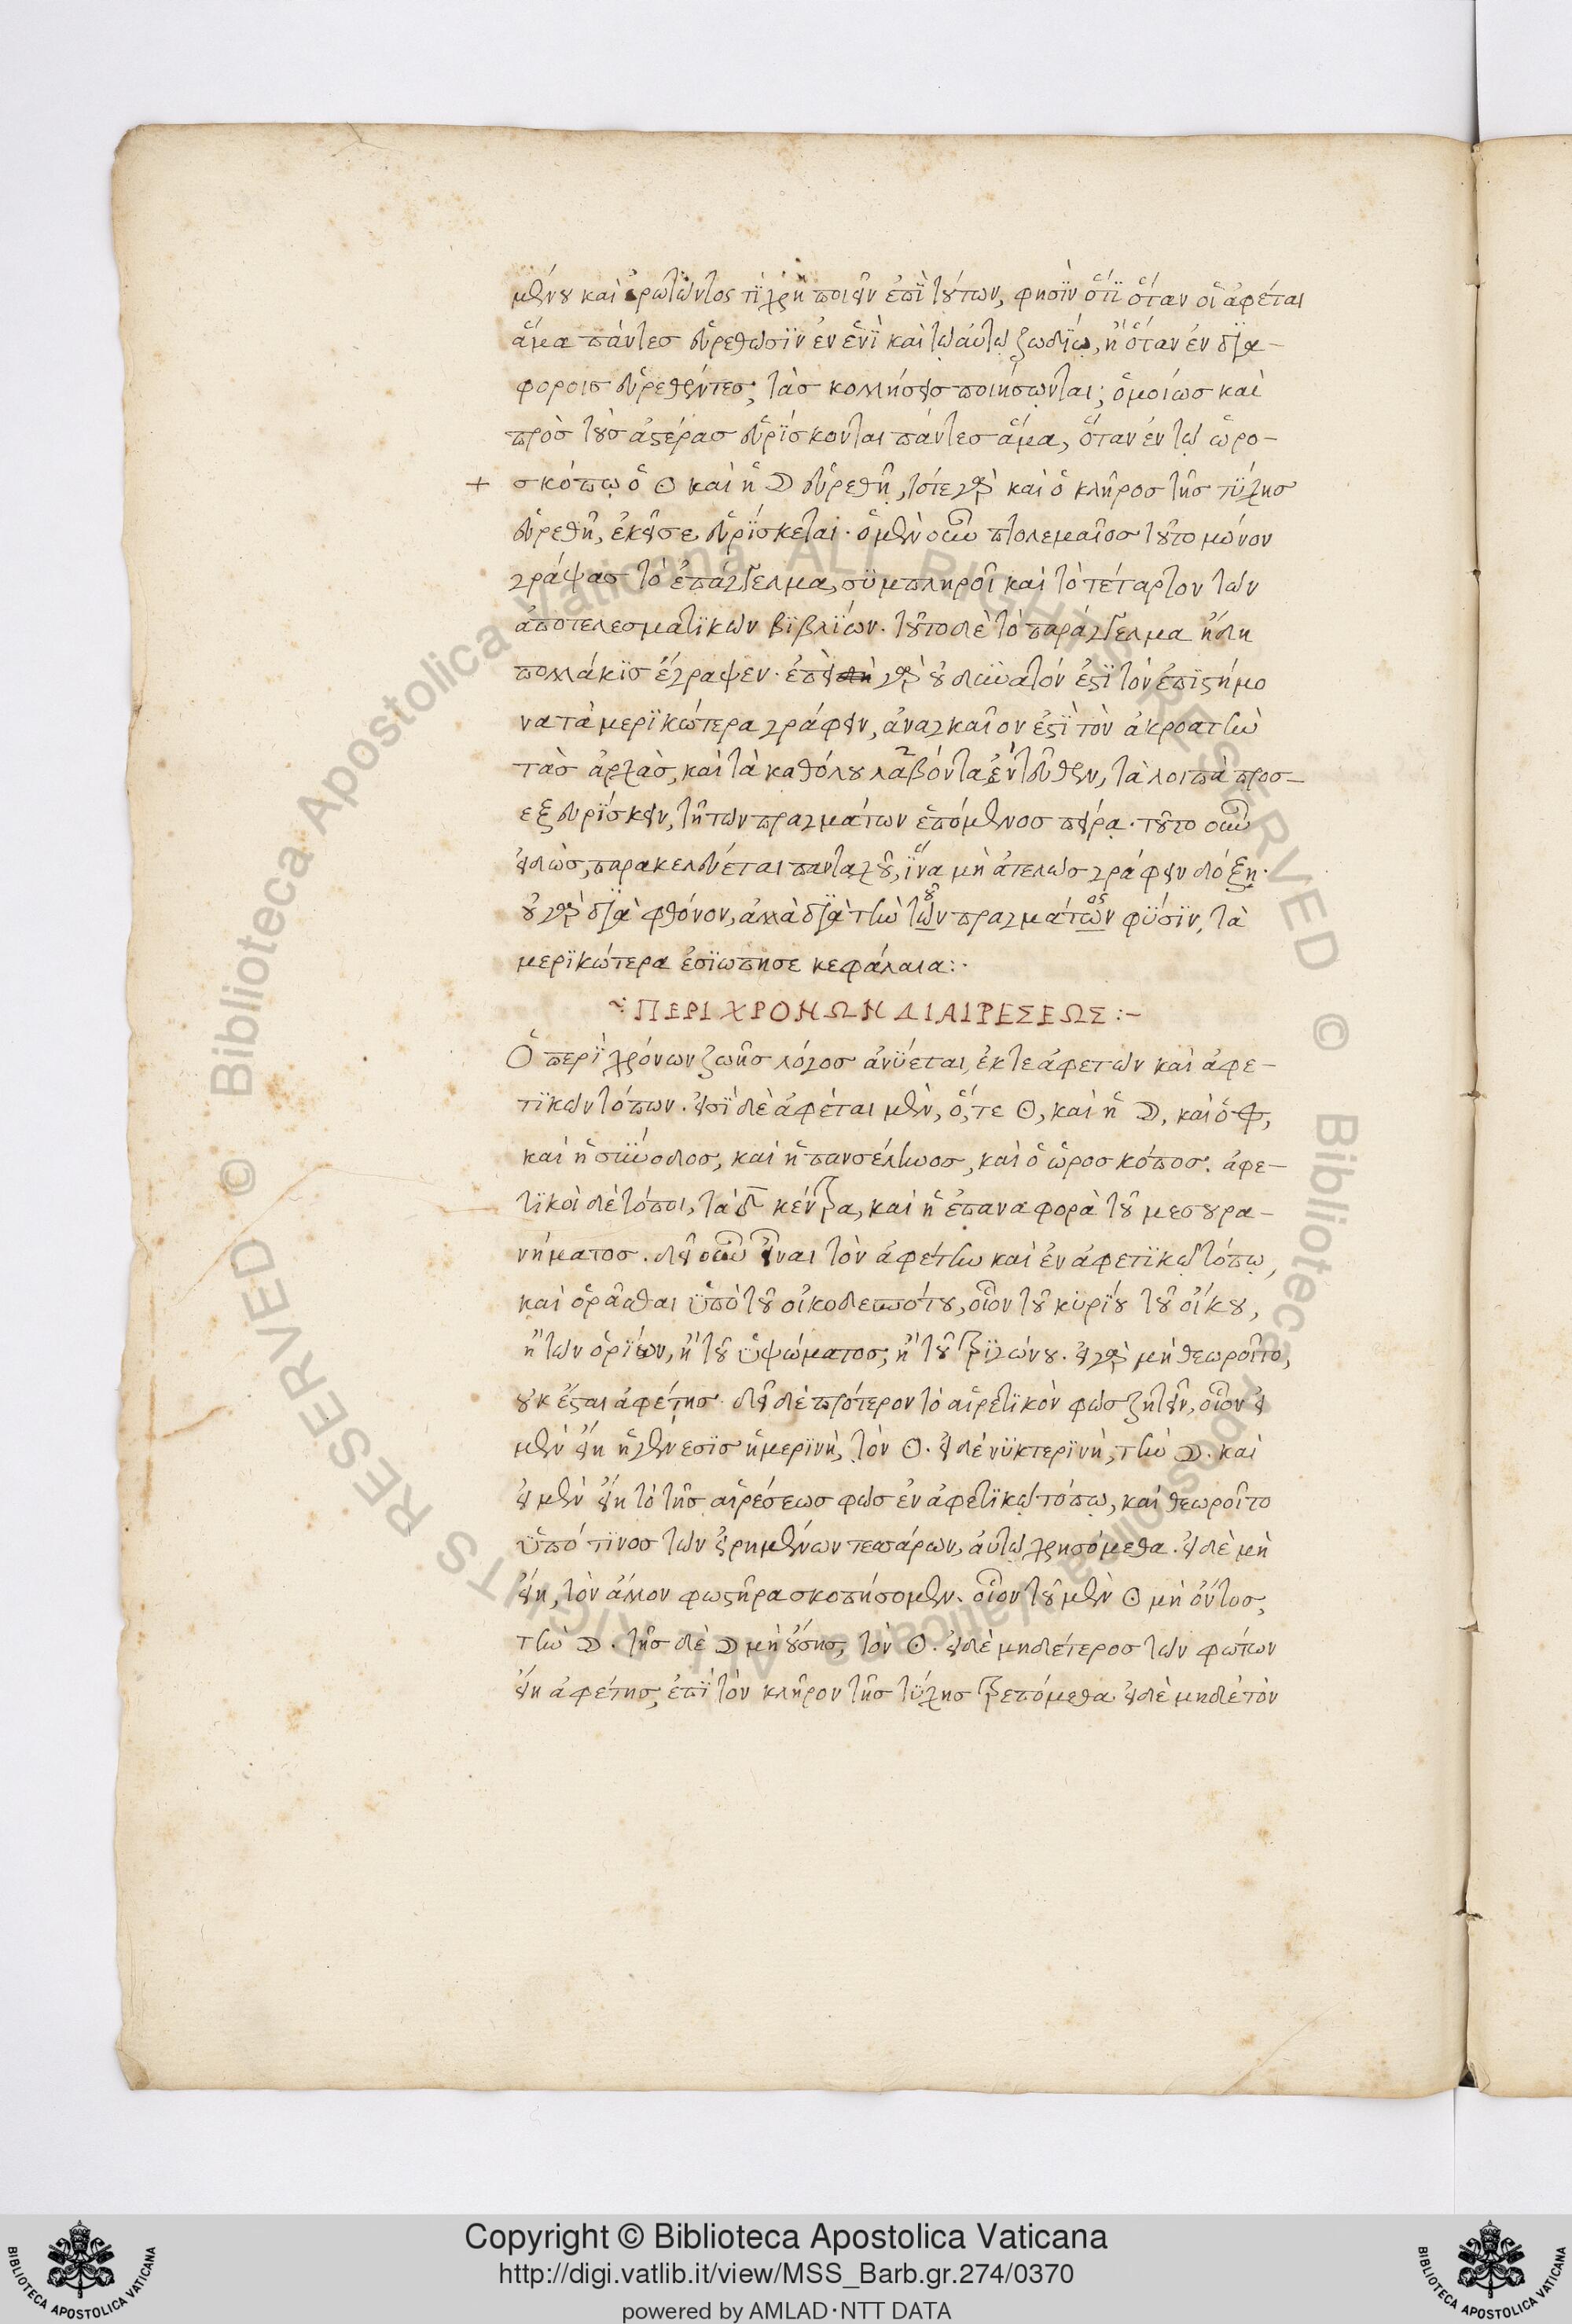 μένου καὶ ἐρωτῶντος τί χρὴ ποιεῖν ἐπὶ τούτων, φησὶν ὅτι ὅταν οἱ ἀφέται
ἅμα πάντες εὑρεθῶσιν ἐν ἑνὶ καὶ τῷ αὐτῷ ζωδίῳ, ἢ ὅταν ἐν δια-
φόροις εὑρεθέντες, τὰς κολλήσεις ποιήσωνται; ὁμοίως καὶ
πρὸς τοὺς ἀστέρας εὑρίσκονται πάντες ἅμα, ὅταν ἐν τῷ ὡρο-
+ σκόπῳ ὁ ☉ καὶ ἡ ☽ εὑρεθῇ, τότε γὰρ καὶ ὁ κλῆρος τῆς τύχης
εὑρεθῆ, ἐκεῖσε εὑρίσκεται· ὁ μὲν οὖν πτολεμαῖος τοῦτο μόνον
γράψας τὸ ἐπάγγελμα, συμπληροῖ καὶ τὸ τέταρτον τῶν
ἀποτελεσματικῶν βιβλίων. τοῦτο δὲ τὸ παράγγελμα ἤδη
πολλάκις ἔγραψεν· ἐπεὶ γὰρ οὐ δυνατόν ἐστι τὸν ἐπιστήμο
να τὰ μερικώτερα γράφειν, ἀναγκαῖον ἐστὶ τὸν ἀκροατὴν
τὰς ἀρχὰς, καὶ τὰ καθόλου λαβόντα ἐντεῦθεν, τὰ λοιπὰ προσ-
εξευρίσκειν, τῇ τῶν πραγμάτων ἑπόμενος πείρᾳ· τοῦτο οὖν
εἰδὼς, παρακελεύεται πανταχοῦ, ἵνα μὴ ἀτελῶς γράφειν δόξῃ·
οὐ γὰρ διὰ φθόνον, ἀλλὰ διὰ τὴν τῶν πραγμάτων φύσιν, τὰ
μερικώτερα ἐσιώπησε κεφάλαια:·
ΠΕΡΙ ΧΡΟΝΩΝ ΔΙΑΙΡΕΣΕΩΣ :-
Ὁ περὶ χρόνων ζωῆς λόγος ἀνύεται, ἔκ τε ἀφετῶν καὶ ἀφε-
τικῶν τόπων. εἰσὶ δὲ ἀφέται μὲν, ὅ, τε ☉, καὶ ἡ ☽, καὶ ὁ
καὶ ἡ σύνοδος, καὶ ἡ πανσέληνος, καὶ ὁ ὡροσκόπος. ἀφε-
τικοὶ δὲ τόποι, τὰ δ κέντρα, καὶ ἡ ἐπαναφορὰ τοῦ μεσουρα-
νήματος. δεῖ οὖν εἶναι τὸν ἀφέτην καὶ ἐν ἀφετικῷ τόπῳ,
καὶ ὁρᾶσθαι ὑπὸ τοῦ οἰκοδεσπότου, οἷον τοῦ κυρίου τοῦ οἴκου,
ἢ τῶν ὁρίων, ἢ τοῦ ὑψώματος, ἢ τοῦ τριγώνου. εἰ γὰρ μὴ θεωροῖτο,
οὐκ ἔσται ἀφέτης· δεῖ δὲ πρότερον τὸ αἱρετικὸν φῶς ζητεῖν, οἷον εἰ
μὲν εἴη ἡ γένεσις ἡμερινὴ, τὸν ☉. εἰ δὲ νυκτερινὴ, τὴν ☽. καὶ
εἰ μὲν εἴη τὸ τῆς αἱρέσεως φῶς ἐν ἀφετικῷ τόπῳ, καὶ θεωροῖτο
ὑπό τινος τῶν εἰρημένων τεσσάρων, αὐτῷ χρησόμεθα. εἰ δὲ μὴ
εἴη, τὸν ἄλλον φωστῆρα σκοπήσομεν. οἷον τοῦ μὲν ☉ μὴ ὄντος,
τὴν ☽. τῆς δὲ ☽ μὴ οὔσης, τὸν ☉. εἰ δὲ μηδέτερος τῶν φώτων
εἴη ἀφέτης, ἐπὶ τὸν κλῆρον τῆς τύχης τρεπόμεθα· εἰ δὲ μηδὲ τὸν
Copyright © Biblioteca Apostolica Vaticana
http://digi.vatlib.it/view/MSS_Barb.gr.274/0370
powered by AMLAD·NTT DATA
BIBLIOTECA APOSTOLICA VATICANA
BIBLIOTECA APOSTOLICA VATICANA
© Biblioteca Apostolica Vaticana ALL RIGHTS RESERVED
© Biblioteca Apostolica Vaticana ALL RIGHTS RESERVED